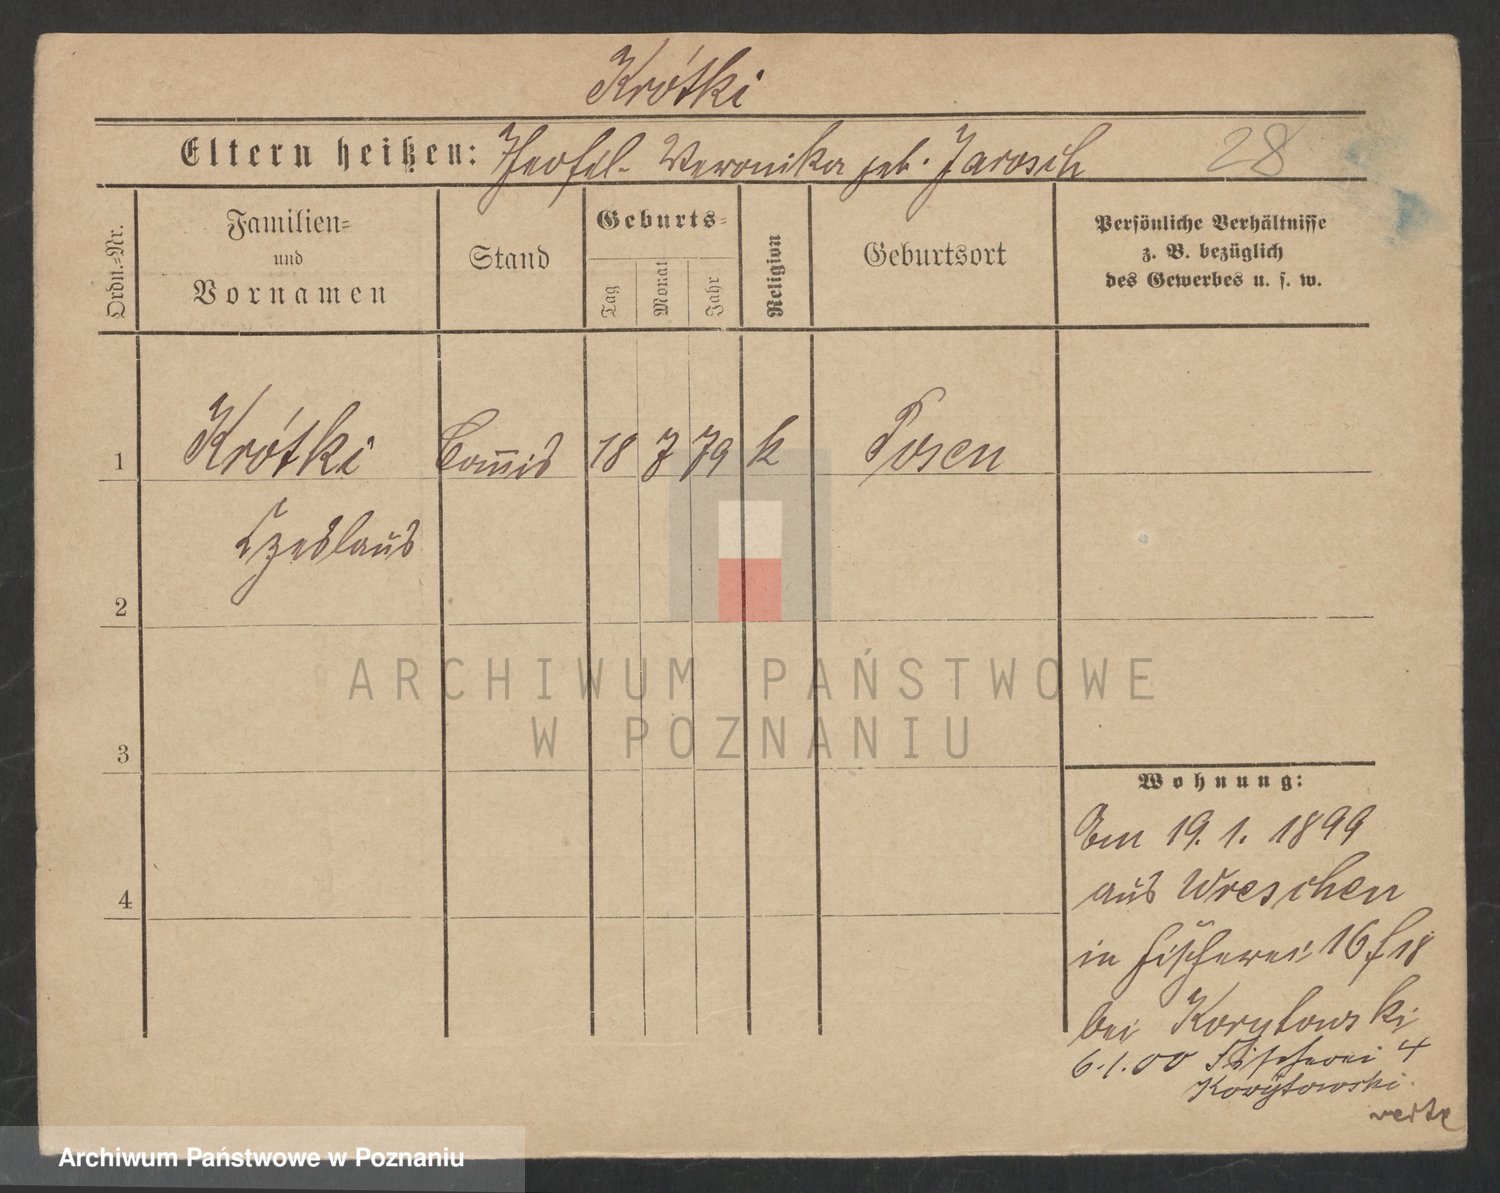 Krótki
Eltern heißen: Theofil. Veronika geb. Jarosch 28
Ordn.-Nr.
Familien-
und
Vornamen
Stand
Geburts-
Tag
Monat
Jahr
Religion
Geburtsort
Persönliche Verhältnisse
z. B. bezüglich
des Gewerbes u. s. w.
1 Krótki Com̅is 18 7 79 k Posen
Czeslaus
2
3
4
ARCHIWUM PAŃSTWOWE
W POZNANIU
Wohnung:
Am 19. 1. 1899
aus Wreschen
in Fischerei 16
bei Korytowski
6.1.00 Fischerei 4
Korytowski
Archiwum Państwowe w Poznaniu